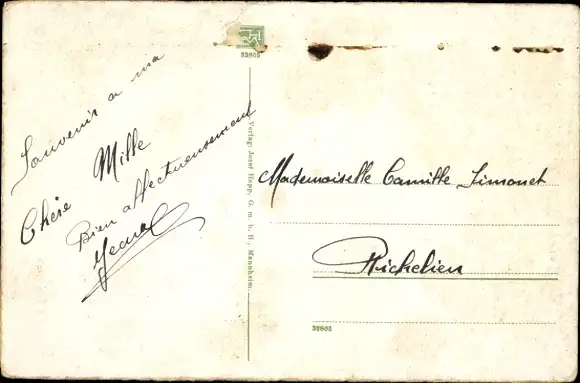 32805
Souvenir a ma
Chère Mille
Bien affectueusement
Verlag: Josef Hopp, G. m. b. H., Mannheim.
Mademoiselle Camille Simonet
Richelieu
32805